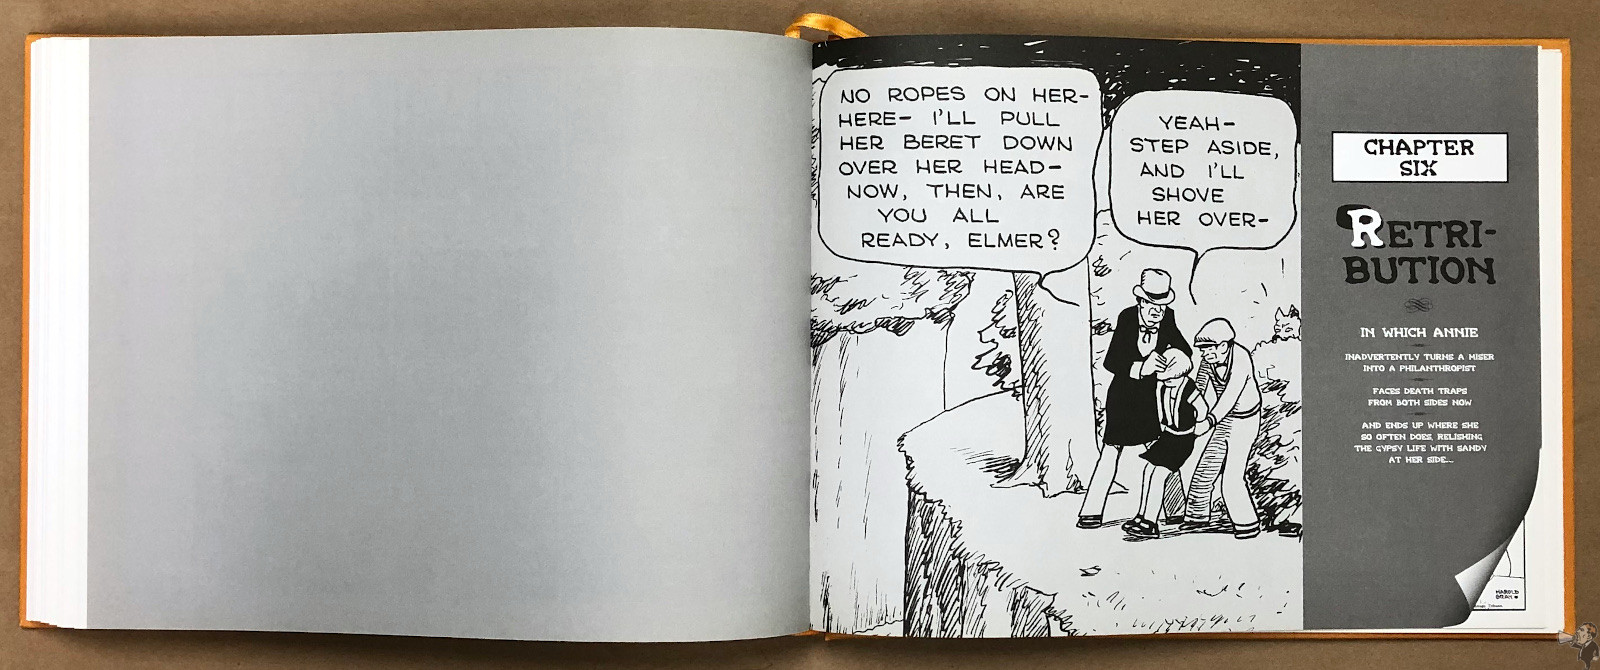 NO ROPES ON HER-
HERE- I'LL PULL
HER BERET DOWN
OVER HER HEAD-
NOW, THEN, ARE
YOU ALL
READY, ELMER?
YEAH-
STEP ASIDE,
AND I'LL
SHOVE
HER OVER-
CHAPTER
SIX
RETRI-
BUTION
IN WHICH ANNIE
INADVERTENTLY TURNS A MISER
INTO A PHILANTHROPIST
FACES DEATH TRAPS
FROM BOTH SIDES NOW
AND ENDS UP WHERE SHE
SO OFTEN DOES, RELISHING
THE GYPSY LIFE WITH SANDY
AT HER SIDE...
HAROLD
GRAY